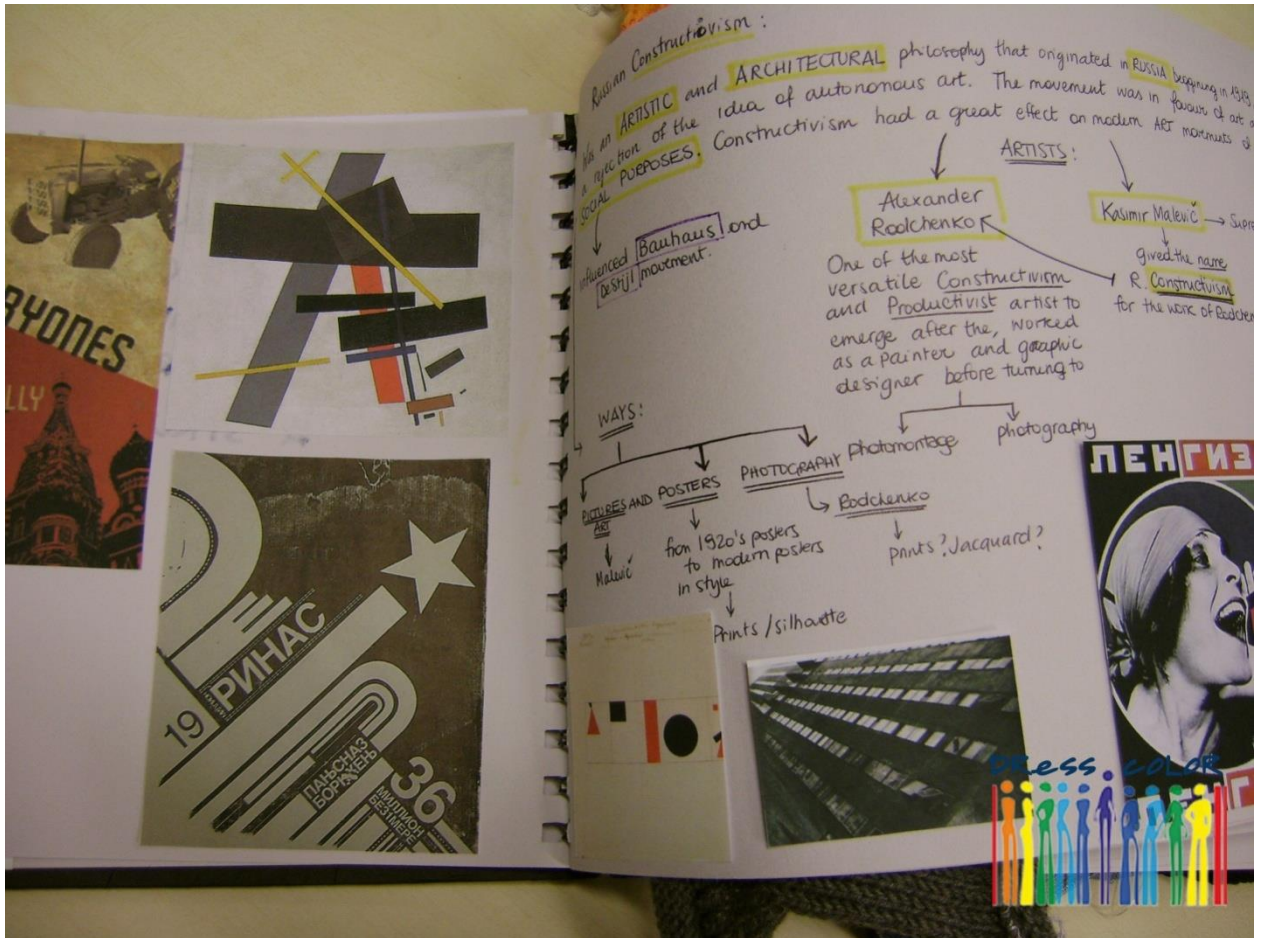 RYONES
LLY
19
РИНАС
ПАНЬСНАЗ
БОРІЖЕНЬ
36
МИЛЛИОН
БЕЗ1МЕРЕ
Russian Constructiovism:
Was an ARTISTIC and ARCHITECTURAL philosophy that originated in RUSSIA beggining in 1919
a rejection of the idea of autonomous art. The movement was in favour of art
SOCIAL PURPOSES. Constructivism had a great effect on modern ART movments of
influenced Bauhaus and
DeStijl movement.
ARTISTS:
Alexander
Rodchenko
One of the most
versatile Constructivism
and Productivist artist to
emerge after the, worked
as a painter and graphic
designer before turning to
photomontage
photography
Kasimir Malevič → Supre
gived the name
R. Constructivism
for the work of Rodchen
WAYS:
PICTURES AND POSTERS
ART
Malevič
from 1920's posters
to modern posters
in style
Prints / silhouette
PHOTOGRAPHY
Rodchenko
prints? Jacquard?
ЛЕНГИЗ
DRess coLoR